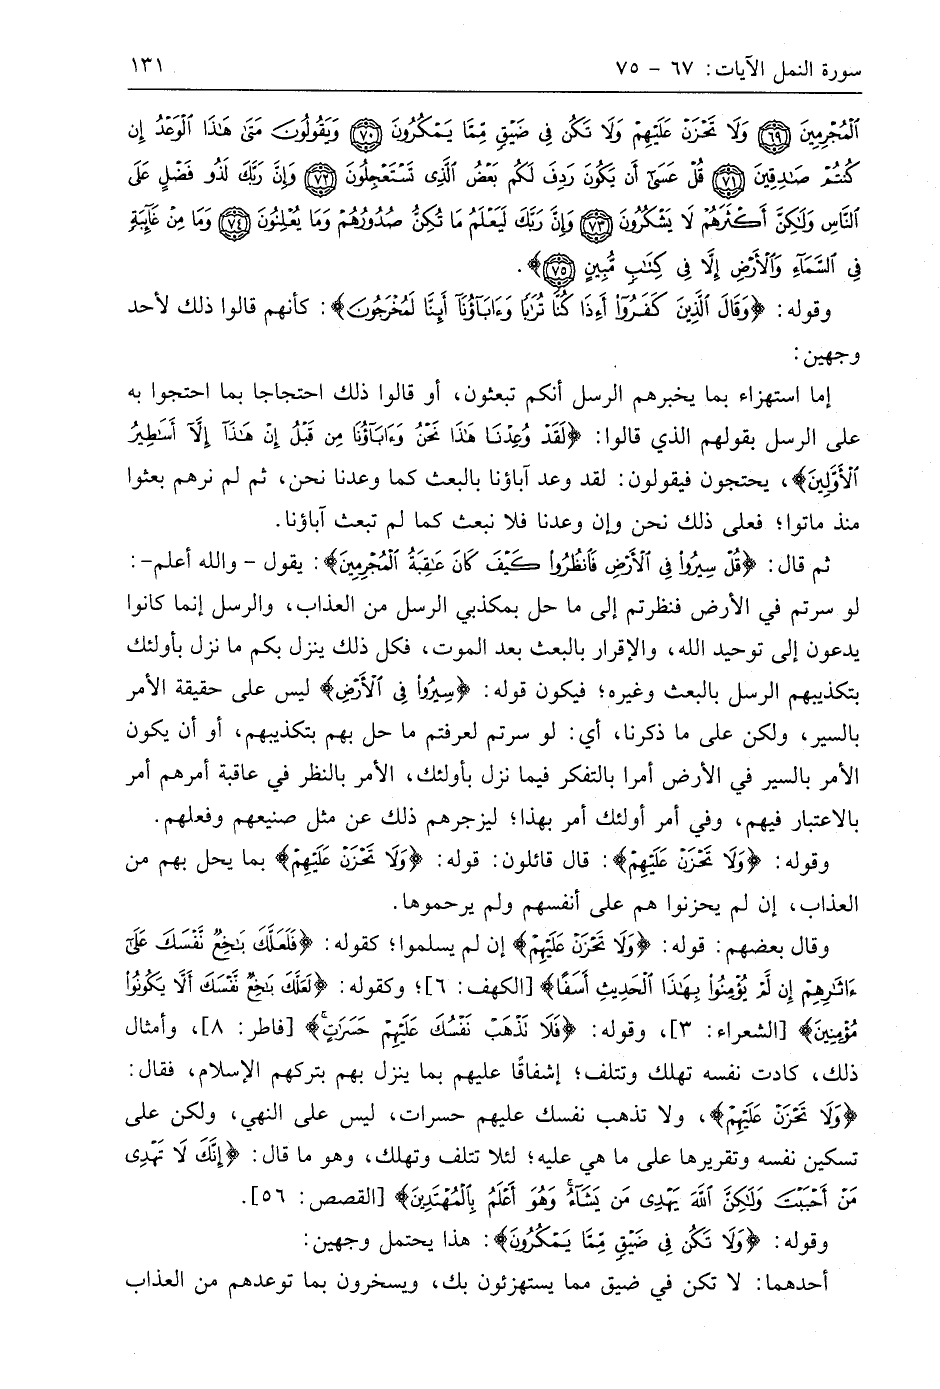 سورة النمل الآيات: ٦٧ - ٧٥ ١٣١
ٱلۡمُجۡرِمِينَ ﴿٦٩﴾ وَلَا تَحۡزَنۡ عَلَيۡهِمۡ وَلَا تَكُن فِي ضَيۡقٖ مِّمَّا يَمۡكُرُونَ ﴿٧٠﴾ وَيَقُولُونَ مَتَىٰ هَٰذَا ٱلۡوَعۡدُ إِن
كُنتُمۡ صَٰدِقِينَ ﴿٧١﴾ قُلۡ عَسَىٰٓ أَن يَكُونَ رَدِفَ لَكُم بَعۡضُ ٱلَّذِي تَسۡتَعۡجِلُونَ ﴿٧٢﴾ وَإِنَّ رَبَّكَ لَذُو فَضۡلٍ عَلَى
ٱلنَّاسِ وَلَٰكِنَّ أَكۡثَرَهُمۡ لَا يَشۡكُرُونَ ﴿٧٣﴾ وَإِنَّ رَبَّكَ لَيَعۡلَمُ مَا تُكِنُّ صُدُورُهُمۡ وَمَا يُعۡلِنُونَ ﴿٧٤﴾ وَمَا مِنۡ غَآئِبَةٖ
فِي ٱلسَّمَآءِ وَٱلۡأَرۡضِ إِلَّا فِي كِتَٰبٖ مُّبِينٍ ﴿٧٥﴾﴾.
وقوله: ﴿وَقَالَ ٱلَّذِينَ كَفَرُوٓاْ أَءِذَا كُنَّا تُرَٰبٗا وَءَابَآؤُنَآ أَئِنَّا لَمُخۡرَجُونَ﴾: كأنهم قالوا ذلك لأحد
وجهين:
إما استهزاء بما يخبرهم الرسل أنكم تبعثون، أو قالوا ذلك احتجاجا بما احتجوا به
على الرسل بقولهم الذي قالوا: ﴿لَقَدۡ وُعِدۡنَا هَٰذَا نَحۡنُ وَءَابَآؤُنَا مِن قَبۡلُ إِنۡ هَٰذَآ إِلَّآ أَسَٰطِيرُ
ٱلۡأَوَّلِينَ﴾، يحتجون فيقولون: لقد وعد آباؤنا بالبعث كما وعدنا نحن، ثم لم نرهم بعثوا
منذ ماتوا؛ فعلى ذلك نحن وإن وعدنا فلا نبعث كما لم تبعث آباؤنا.
ثم قال: ﴿قُلۡ سِيرُواْ فِي ٱلۡأَرۡضِ فَٱنظُرُواْ كَيۡفَ كَانَ عَٰقِبَةُ ٱلۡمُجۡرِمِينَ﴾: يقول - والله أعلم-:
لو سرتم في الأرض فنظرتم إلى ما حل بمكذبي الرسل من العذاب، والرسل إنما كانوا
يدعون إلى توحيد الله، والإقرار بالبعث بعد الموت، فكل ذلك ينزل بكم ما نزل بأولئك
بتكذيبهم الرسل بالبعث وغيره؛ فيكون قوله: ﴿سِيرُواْ فِي ٱلۡأَرۡضِ﴾ ليس على حقيقة الأمر
بالسير، ولكن على ما ذكرنا، أي: لو سرتم لعرفتم ما حل بهم بتكذيبهم، أو أن يكون
الأمر بالسير في الأرض أمرا بالتفكر فيما نزل بأولئك، الأمر بالنظر في عاقبة أمرهم أمر
بالاعتبار فيهم، وفي أمر أولئك أمر بهذا؛ ليزجرهم ذلك عن مثل صنيعهم وفعلهم.
وقوله: ﴿وَلَا تَحۡزَنۡ عَلَيۡهِمۡ﴾: قال قائلون: قوله: ﴿وَلَا تَحۡزَنۡ عَلَيۡهِمۡ﴾ بما يحل بهم من
العذاب، إن لم يحزنوا هم على أنفسهم ولم يرحموها.
وقال بعضهم: قوله: ﴿وَلَا تَحۡزَنۡ عَلَيۡهِمۡ﴾ إن لم يسلموا؛ كقوله: ﴿فَلَعَلَّكَ بَٰخِعٞ نَّفۡسَكَ عَلَىٰٓ
ءَاثَٰرِهِمۡ إِن لَّمۡ يُؤۡمِنُواْ بِهَٰذَا ٱلۡحَدِيثِ أَسَفًا﴾ [الكهف: ٦]؛ وكقوله: ﴿لَعَلَّكَ بَٰخِعٞ نَّفۡسَكَ أَلَّا يَكُونُواْ
مُؤۡمِنِينَ﴾ [الشعراء: ٣]، وقوله: ﴿فَلَا تَذۡهَبۡ نَفۡسُكَ عَلَيۡهِمۡ حَسَرَٰتٍۚ﴾ [فاطر: ٨]، وأمثال
ذلك، كادت نفسه تهلك وتتلف؛ إشفاقًا عليهم بما ينزل بهم بتركهم الإسلام، فقال:
﴿وَلَا تَحۡزَنۡ عَلَيۡهِمۡ﴾، ولا تذهب نفسك عليهم حسرات، ليس على النهي، ولكن على
تسكين نفسه وتقريرها على ما هي عليه؛ لئلا تتلف وتهلك، وهو ما قال: ﴿إِنَّكَ لَا تَهۡدِي
مَنۡ أَحۡبَبۡتَ وَلَٰكِنَّ ٱللَّهَ يَهۡدِي مَن يَشَآءُۚ وَهُوَ أَعۡلَمُ بِٱلۡمُهۡتَدِينَ﴾ [القصص: ٥٦].
وقوله: ﴿وَلَا تَكُن فِي ضَيۡقٖ مِّمَّا يَمۡكُرُونَ﴾: هذا يحتمل وجهين:
أحدهما: لا تكن في ضيق مما يستهزئون بك، ويسخرون بما توعدهم من العذاب